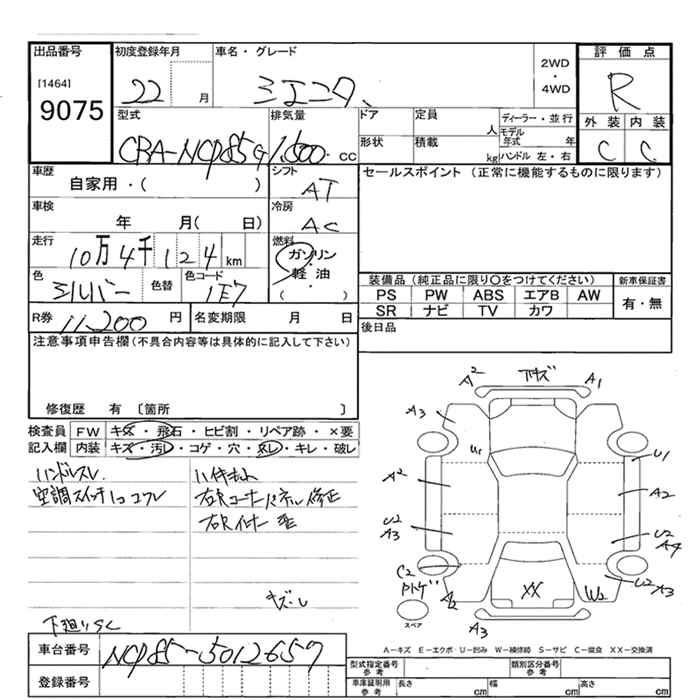 出品番号 初度登録年月 車名・グレード 評価点
[1464]
9075
22 月 シエンタ 2WD・4WD R
型式 排気量 ドア 定員 人 ディーラー・並行
CBA-NCP85G 1,500 cc 形状 積載 kg モデル年式 年
ハンドル 左・右
外装 内装
C C
車歴 自家用・( ) シフト AT セールスポイント (正常に機能するものに限ります)
車検 年 月( 日) 冷房 AC
走行 10万4千124 km 燃料 ガソリン・軽油・( )
色 シルバー 色替 色コード 1E7
装備品 (純正品に限り○をつけてください) 新車保証書
PS PW ABS エアB AW 有・無
SR ナビ TV カワ
R券 11,200 円 名変期限 月 日 後日品
注意事項申告欄 (不具合内容等は具体的に記入して下さい)
修復歴 有 [箇所 ]
検査員 FW キズ・飛石・ヒビ割・リペア跡・×要
記入欄 内装 キズ・汚し・コゲ・穴・スレ・キレ・破レ
ハンドルスレ
空調スイッチ1コ コワレ
右Rコーナーパネル修正
右Rインナー 歪
下廻りSC
A2 下キズ A1
A3
U1 U1
A2 A2
U2 A3 U2 A4
C2 XX W2 U2 A3
A2
スペア
A3
A-キズ E-エクボ U-凹み W-補修跡 S-サビ C-腐食 XX-交換済
車台番号 NCP85-5012657
登録番号
型式指定番号 参考 類別区分番号 参考
車庫証明用 参考 長さ cm 幅 cm 高さ cm